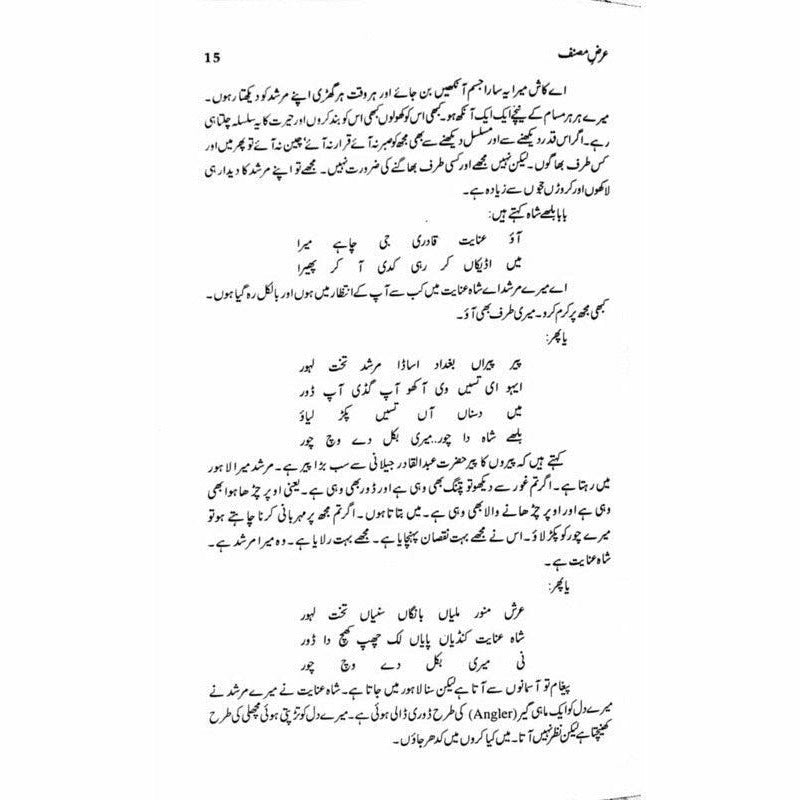 عرضِ مصنف 15
اے کاش میرا یہ سارا جسم آنکھیں بن جائے اور ہر وقت ہر گھڑی اپنے مرشد کو دیکھتا رہوں۔
میرے ہر ہر مسام کے نیچے ایک ایک آنکھ ہو۔ کبھی اس کو کھولوں کبھی اس کو بند کروں اور حیرت کا یہ سلسلہ چلتا ہی
رہے۔ اگر اس قدر دیکھنے سے اور مسلسل دیکھنے سے بھی مجھ کو صبر نہ آئے قرار نہ آئے، چین نہ آئے تو پھر میں اور
کس طرف بھاگوں۔ لیکن نہیں مجھے اور کسی طرف بھاگنے کی ضرورت نہیں۔ مجھے تو اپنے مرشد کا دیدار ہی
لاکھوں اور کروڑں حجوں سے زیادہ ہے۔
بابا بلھے شاہ کہتے ہیں:
آؤ عنایت قادری جی چاہے میرا
میں اڈیکاں کر رہی کدی آ کر پھیرا
اے میرے مرشد اے شاہ عنایت میں کب سے آپ کے انتظار میں ہوں اور بالکل رہ گیا ہوں۔
کبھی مجھ پر کرم کرو۔ میری طرف بھی آؤ۔
یا پھر:
پیر پیراں بغداد اساڈا مرشد تخت لہور
ایہو ای تسیں وی آکھو آپ گڈی آپ ڈور
میں دسناں آں تسیں پکڑ لیاؤ
بلھے شاہ دا چور..میری بکل دے وچ چور
کہتے ہیں کہ پیروں کا پیر حضرت عبدالقادر جیلانی سے سب بڑا پیر ہے۔ مرشد میرا لاہور
میں رہتا ہے۔ اگر تم غور سے دیکھو تو پتنگ بھی وہی ہے اور ڈور بھی وہی ہے۔ یعنی اوپر چڑھا ہوا بھی
وہی ہے اور اوپر چڑھانے والا بھی وہی ہے۔ میں بتاتا ہوں۔ اگر تم مجھ پر مہربانی کرنا چاہتے ہو تو
میرے چور کو پکڑ لاؤ۔ اس نے مجھے بہت نقصان پہنچایا ہے۔ مجھے بہت رلایا ہے۔ وہ میرا مرشد ہے۔
شاہ عنایت ہے۔
یا پھر:
عرش منور ملیاں بانگاں سنیاں تخت لہور
شاہ عنایت کنڈیاں پایاں لک چھپ کھچ دا ڈور
نی میری بکل دے وچ چور
پیغام تو آسمانوں سے آتا ہے لیکن سنا لاہور میں جاتا ہے۔ شاہ عنایت نے میرے مرشد نے
میرے دل کو ایک ماہی گیر (Angler) کی طرح ڈوری ڈالی ہوئی ہے۔ میرے دل کو تڑپتی ہوئی مچھلی کی طرح
کھینچتا ہے لیکن نظر نہیں آتا۔ میں کیا کروں میں کدھر جاؤں۔